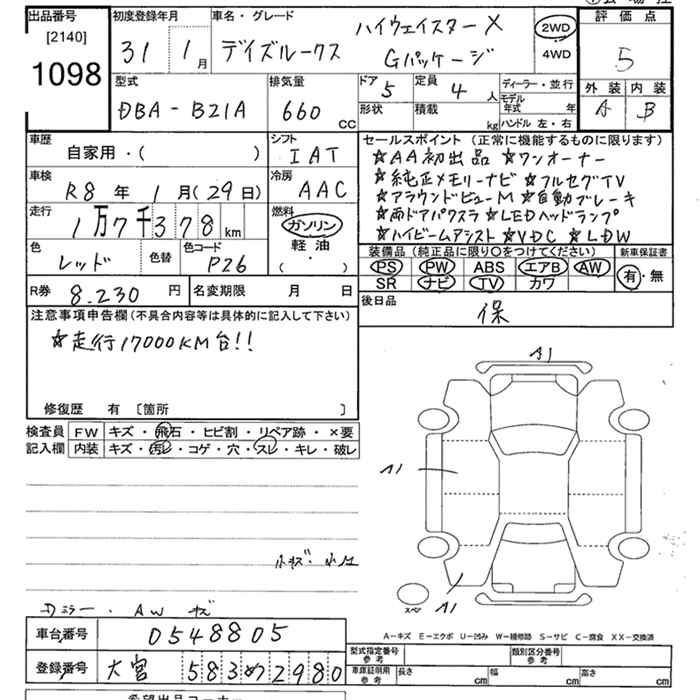 出品番号 初度登録年月 車名・グレード 評価点
[2140] 31 1月 デイズルークス ハイウェイスターX Gパッケージ 2WD 5
1098 4WD
型式 排気量 ドア 5 定員 4人 ディーラー・並行 外装 内装
DBA - B21A 660 CC 形状 積載 kg モデル年式 年 A B
ハンドル 左・右
車歴 シフト セールスポイント (正常に機能するものに限ります)
自家用・( ) IAT ☆AA初出品 ☆ワンオーナー
車検 冷房 ☆純正メモリーナビ ☆フルセグTV
R8年 1月(29日) AAC ☆アラウンドビューM ☆自動ブレーキ
走行 燃料 ☆両ドアパワスラ ☆LEDヘッドランプ
1万7千378km ガソリン ☆ハイビームアシスト ☆VDC ☆LDW
軽油
色 色替 色コード ( ・ ) 装備品 (純正品に限り○をつけてください) 新車保証書
レッド P26 PS PW ABS エアB AW 有・無
SR ナビ TV カワ
R券 8.230円 名変期限 月 日 後日品
保
注意事項申告欄(不具合内容等は具体的に記入して下さい)
☆走行17000KM台!!
修復歴 有 〔箇所 〕
検査員 FW キズ・飛石・ヒビ割・リペア跡・×要
記入欄 内装 キズ・汚レ・コゲ・穴・スレ・キレ・破レ
A1
A1
小キズ・小凹
スペア A1
Dミラー・AW キズ
A−キズ E−エクボ U−凹み W−補修跡 S−サビ C−腐食 XX−交換済
車台番号 0548805
型式指定番号 参考 類別区分番号 参考
登録番号 大宮 583 め 2980
車庫証明用 参考 長さ cm 幅 cm 高さ cm
希望出品コーナー